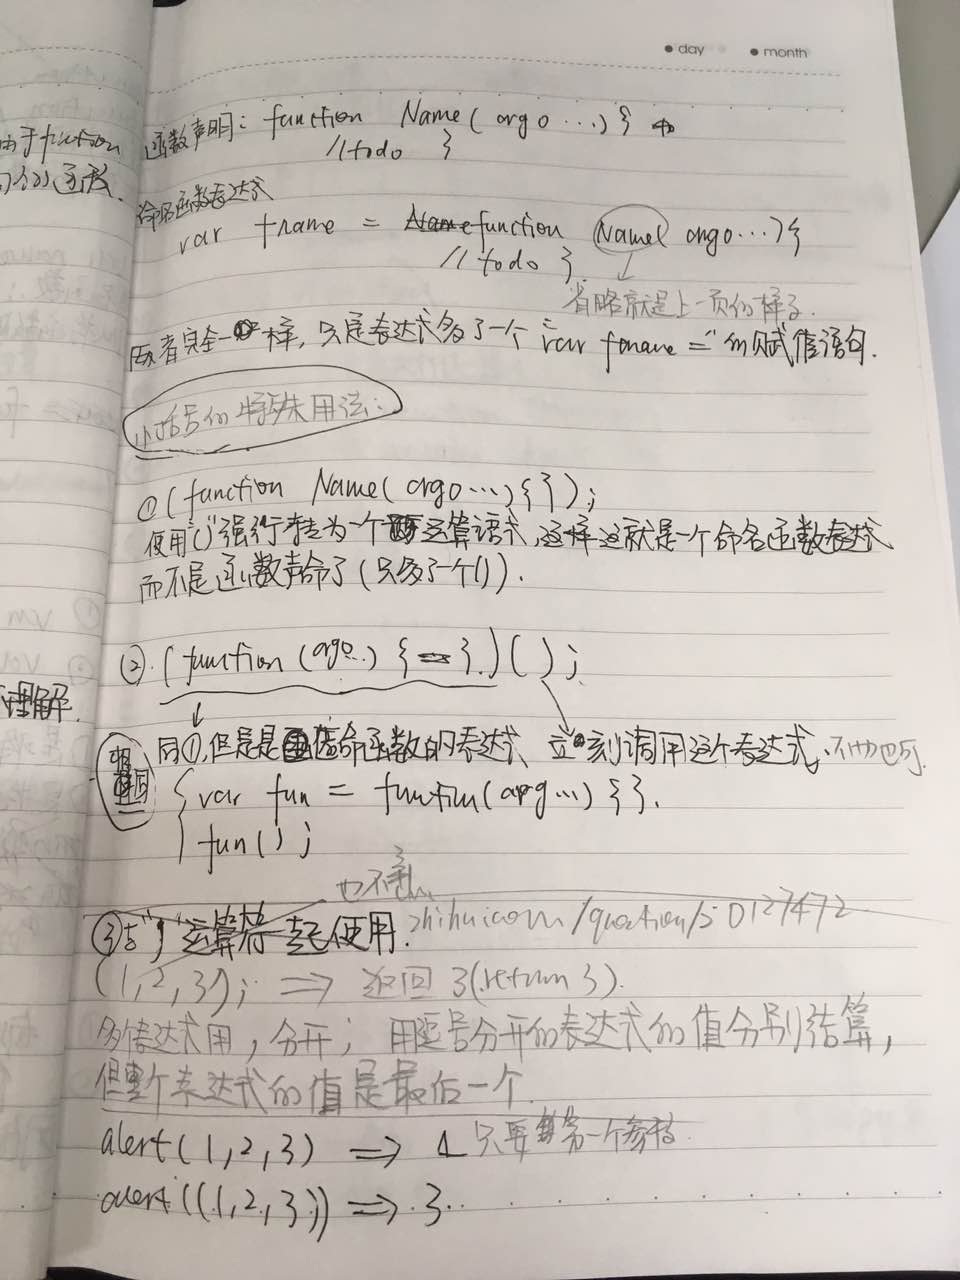 day month
由于function
函数声明: function Name( arg0 ...) {
//todo }
命名函数表达式
var fname = function Name( arg0 ...) {
//todo }
省略就是上一页的样子.
两者完全一样, 只是表达式多了一个 "var fname =" 的赋值语句.
小括号的特殊用法:
① (function Name( arg0 ...) { } );
使用"()"强行转为一个运算语式,这样这就是一个命名函数表达式
而不是函数声命了 (只多了一个()).
②. ( function (arg0...) { } ) ( ) ;
理解.
同①,但是是命函数的表达式 立刻调用这个表达式,不加也可.
var fun = function(arg ...) { }.
fun( ) ;
也不
③与","运算符一起使用. zhihu.com/question/50127472
(1,2,3); => 返回 3(return 3).
多传达式用 , 分开; 用逗号分开的表达式的值分别结算,
但整个表达式的值是最后一个
alert( 1,2,3) => 1 只要第一个参数.
alert((1,2,3)) => 3.